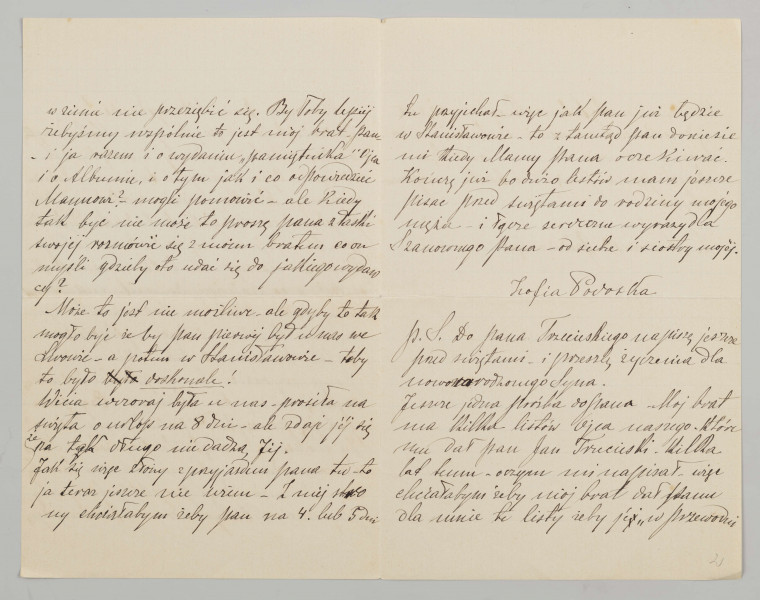 w zimie nie przeziębić się. By toby lepiej
żebyśmy wspólnie to jest mój brat - pan
- i ja razem i o wydaniu "pamiętnika" Ojca
i o Albumie, i o tym jak i co odpowiedzieć
mogli pomówić - ale kiedy
tak być nie może to proszę pana z łaski
swojej rozmówić się z moim bratem co on
myśli gdzieby oto udać się do jakiegoś wydaw
cy?
Może to jest nie możliwe - ale gdyby to tak
mogło być że by pan pierwej był u nas we
Lwowie - a potem w Stanisławowie - toby
to było doskonale!
Wicia wczoraj była u nas - prosiła na
święta o urlop na 8 dni - ale zdaje jej się
że na tak długo nie dadzą Jej.
Jak się więc złoży z przyjazdem pana tu - to
ja teraz jeszcze nie wiem - Z mej stro
ny chciałabym żeby pan na 4. lub 5 dni
tu przyjechał - więc jak pan już będzie
w Stanisławowie - to z tamtąd pan doniesie
mi kiedy Mamy Pana oczekiwać.
Kończę już bo dużo listów mam jeszcze
pisać przed świętami do rodziny mojego
męża - i łączę serdeczne wyrazy dla
Szanownego Pana - od siebie i siostry mojej.
Zofia Podoska
P. S. Do pana Trzecieskiego napiszę jeszcze
przed świętami - i prześlę życzenia dla
nowonarodzonego Syna.
Jeszcze jedna prośba do pana - Mój brat
ma kilka listów Ojca naszego - które
mu dał pan Jan Trzecieski - kilka
lat temu - o czym mi napisał - więc
chciałabym żeby mój brat dał panu
dla mnie te listy żeby je "w przewodni
21